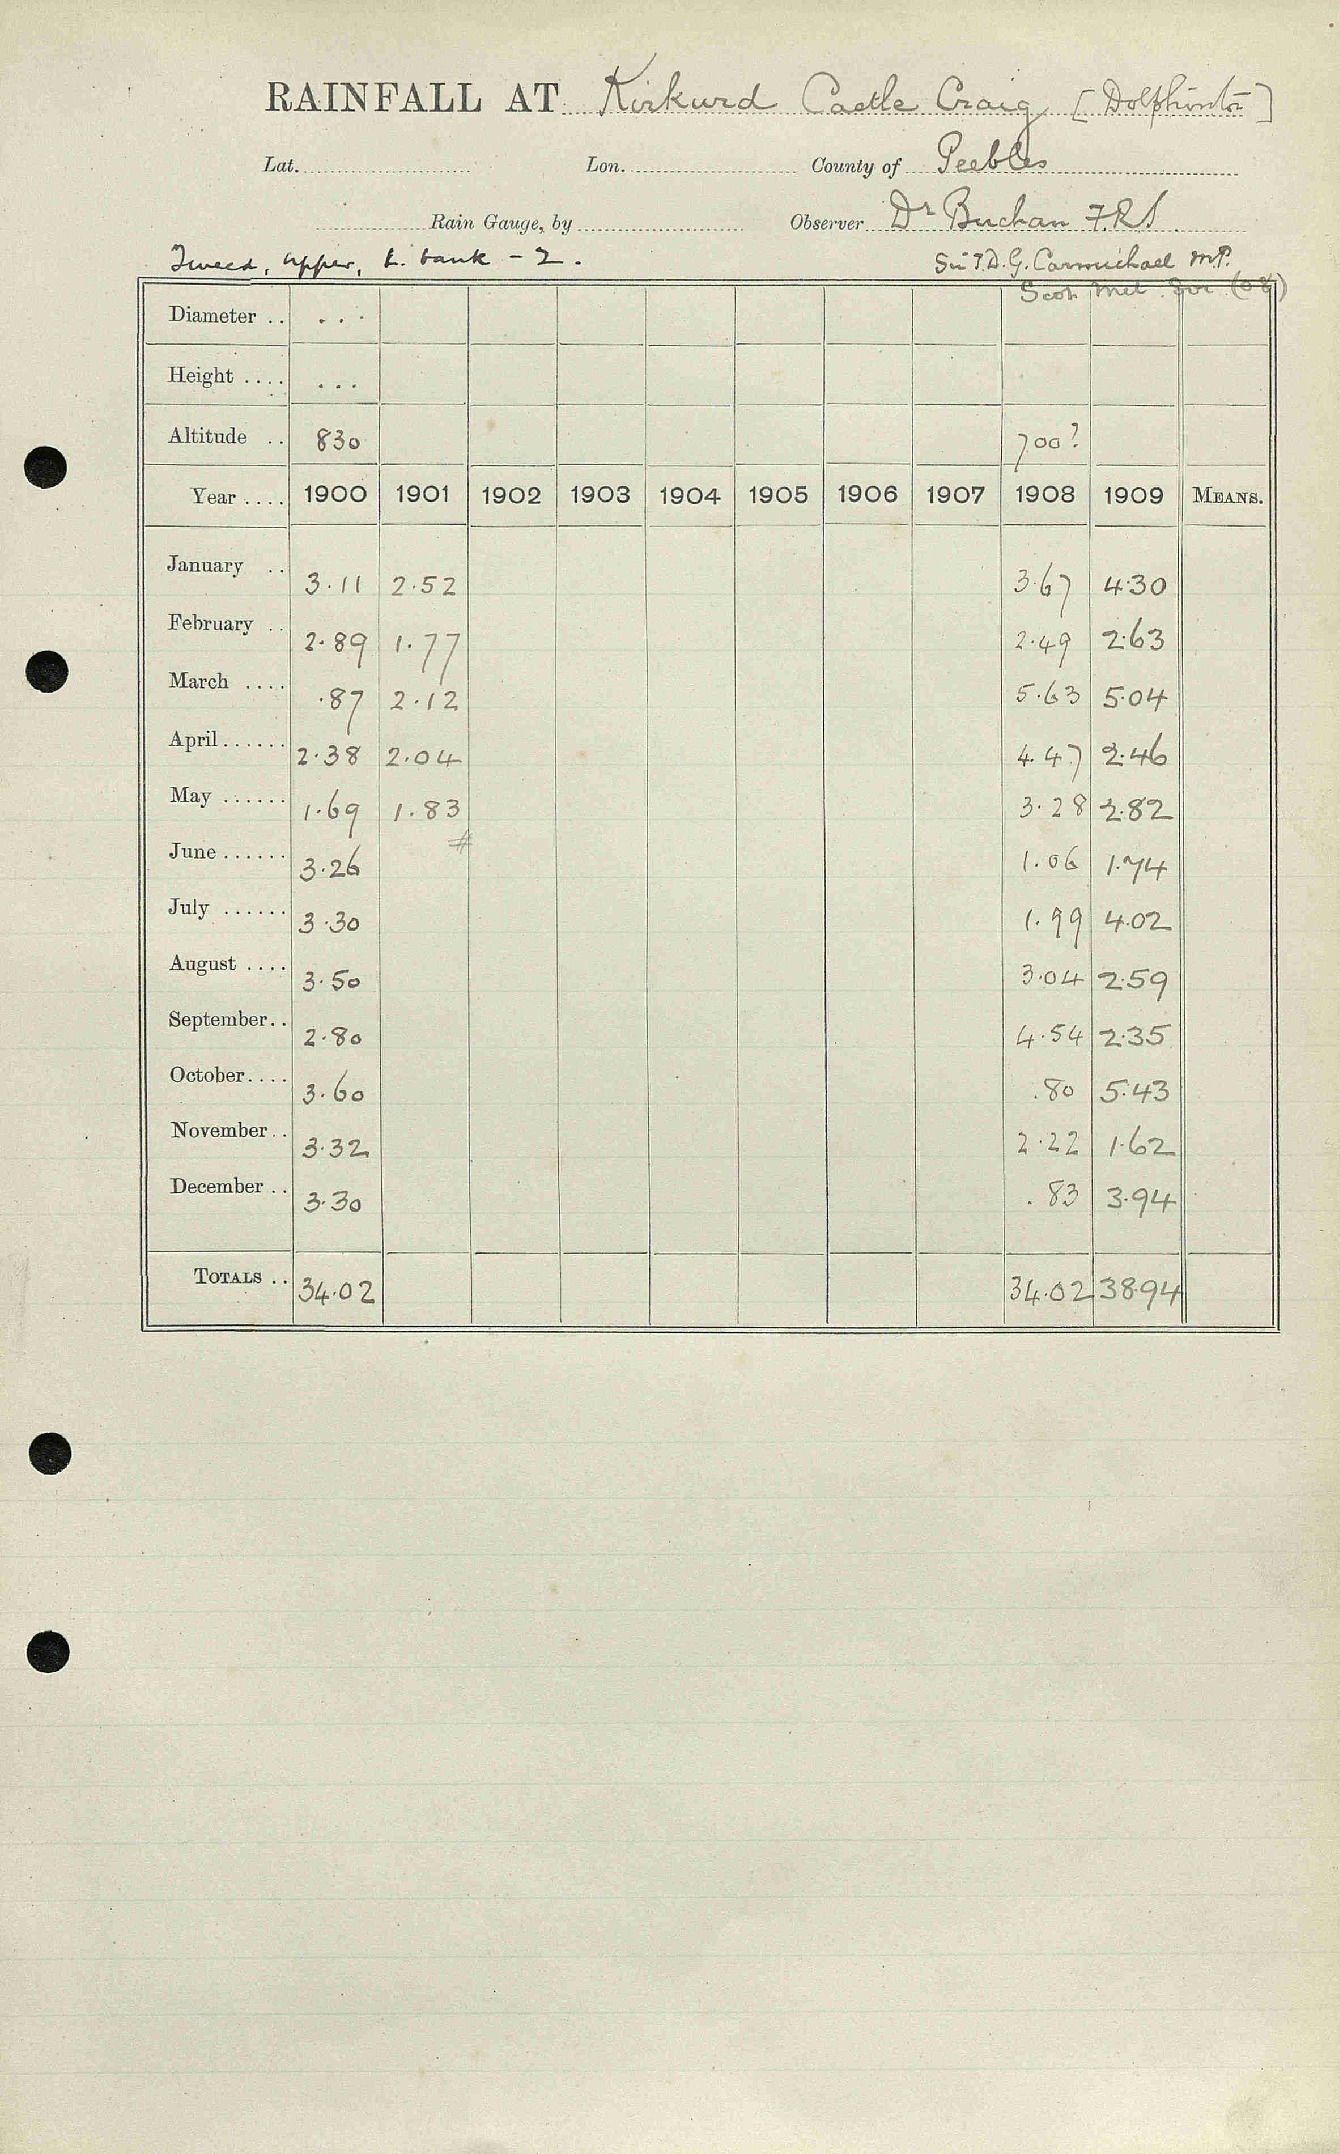 RAINFALL AT Kirkurd Castle Craig [Dolphinton]
Lat. Lon. County of Peebles
Rain Gauge, by Observer Dr Buchan F.R.S.
Tweed, Upper, L. bank - 2. Sir T.D.G. Carmichael M.P.
Scot. Met. Soc (08)
Diameter .. ...
Height .... ...
Altitude .. 830 700?
Year .... 1900 1901 1902 1903 1904 1905 1906 1907 1908 1909 MEANS.
January .. 3.11 2.52 3.67 4.30
February .. 2.89 1.77 2.49 2.63
March .... .87 2.12 5.63 5.04
April ...... 2.38 2.04 4.47 2.46
May ...... 1.69 1.83 3.28 2.82
June ...... 3.26 # 1.06 1.74
July ...... 3.30 1.99 4.02
August .... 3.50 3.04 2.59
September.. 2.80 4.54 2.35
October.... 3.60 .80 5.43
November.. 3.32 2.22 1.62
December .. 3.30 .83 3.94
TOTALS .. 34.02 34.02 38.94